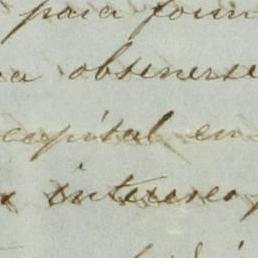 para form
obtenerse
capital en
intereses